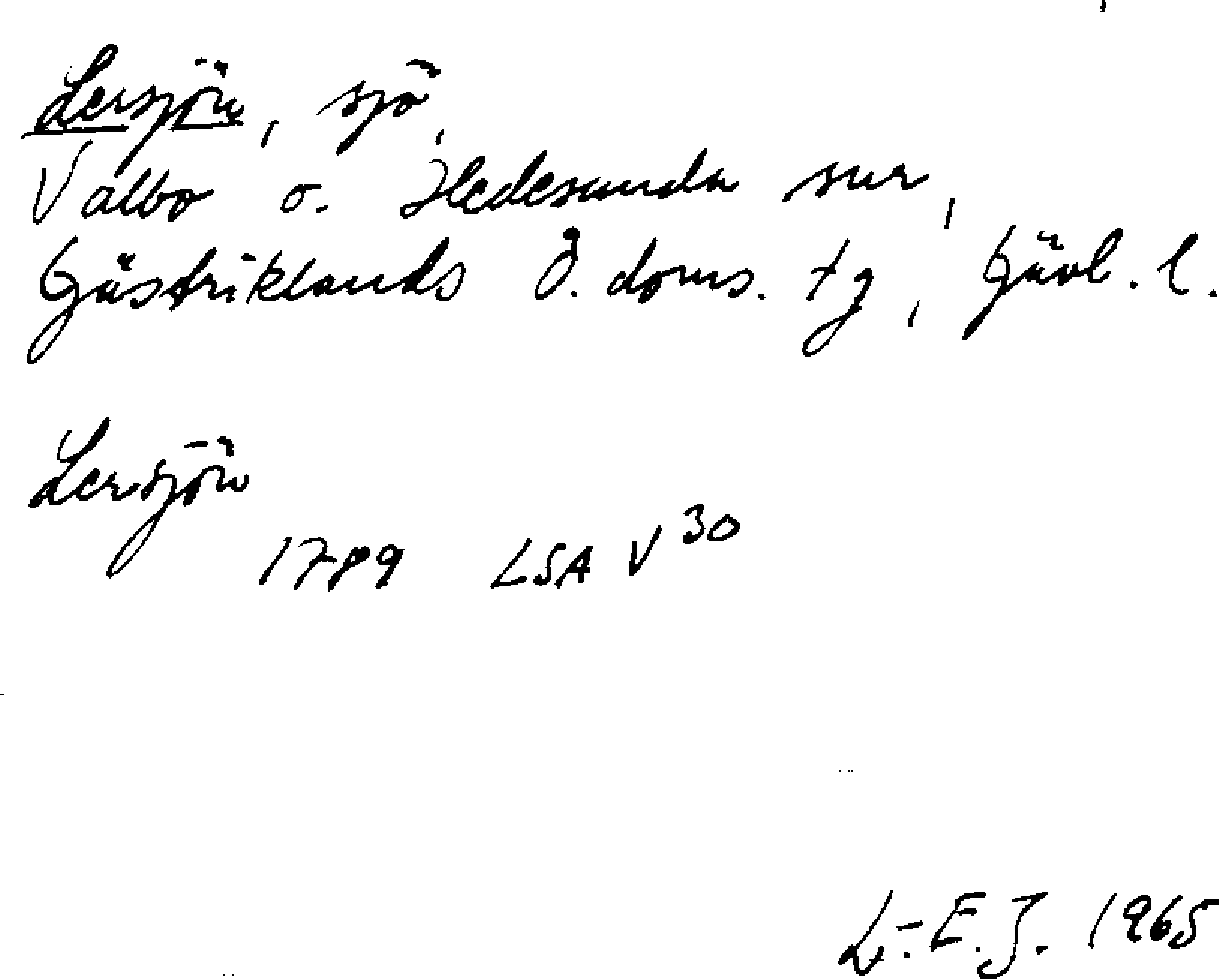 Lersjön, sjö,
Valbo o. Hedesunda snr,
Gästriklands Ö. doms. tg, Gävl. l.
Lersjön
1789 LSA V 30
L.-E. J. 1965